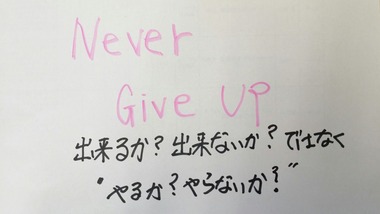 Never
Give Up
出来るか?出来ないか?ではなく
"やるか?やらないか?"